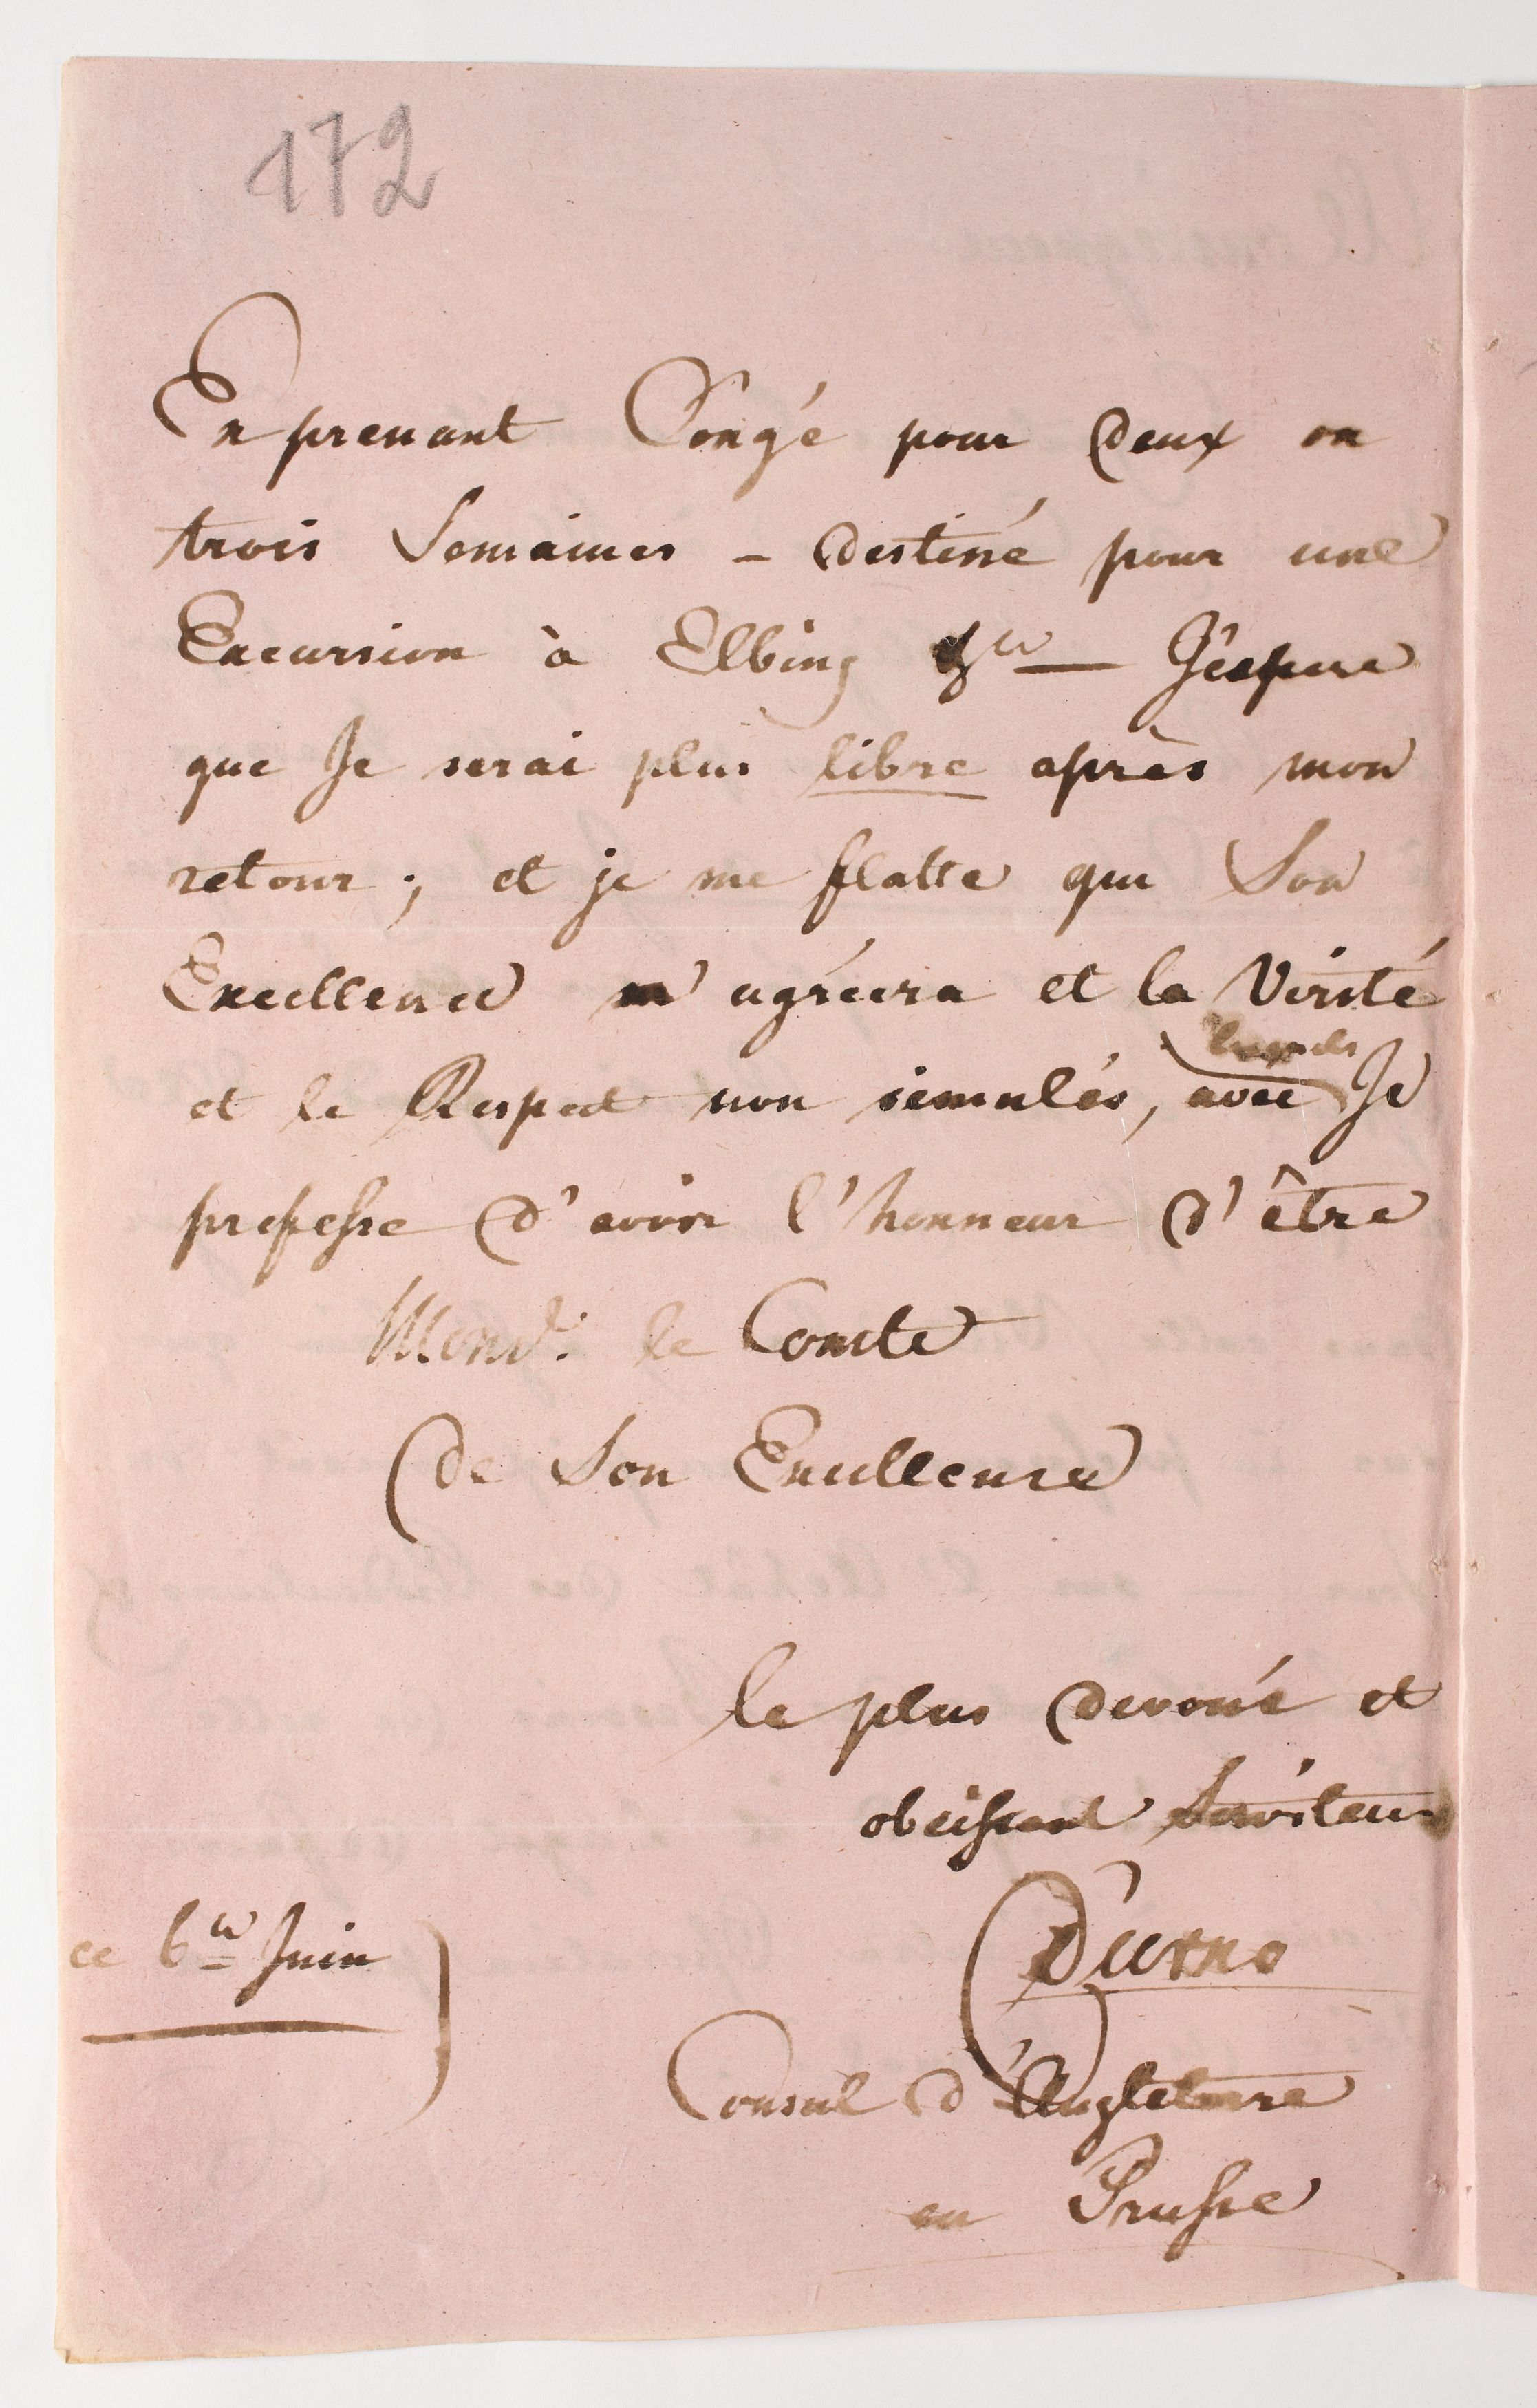 172
En prenant Congé pour deux ou
trois Semaines – destiné pour une
Excursion à Elbing &ce — J'éspere
que Je serai plus libre après mon
retour ; et je me flatte que Son
Excellence m'agréera et la Vérité
lesquels
et le Respect non simulés, avec Je
professe d'avoir l'honneur d'être
Monsr. le Comte
de Son Excellence
le plus devoué et
obeissant Serviteur
Durno
ce 6ce Juin
Consul d'Angleterre
en Prusse